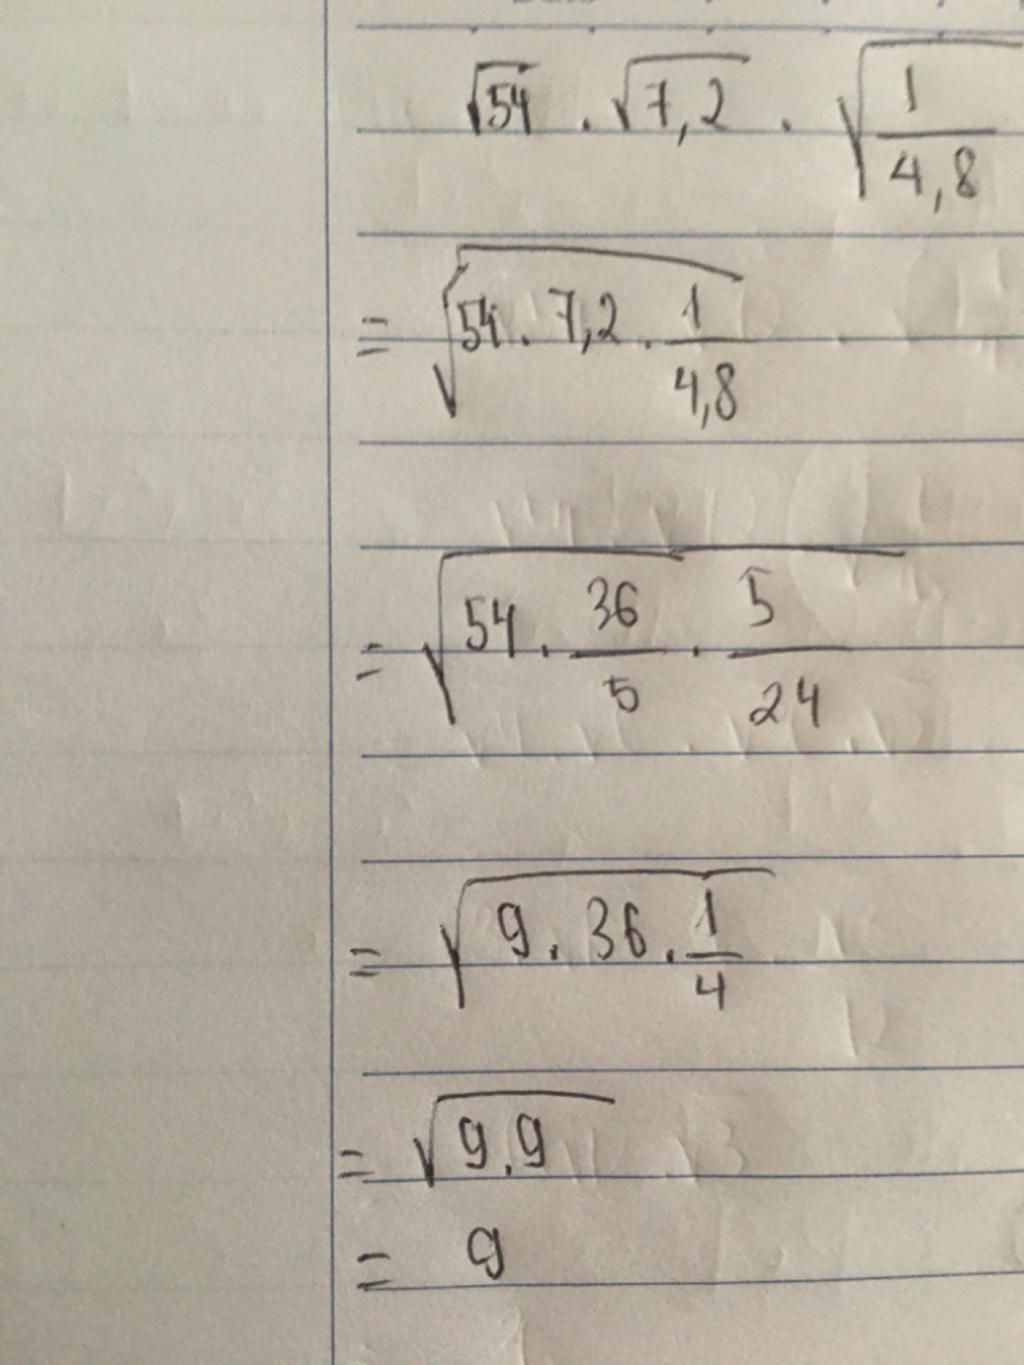 √54 . √7,2 . √(1/4,8)
= √(54 . 7,2 . 1/4,8)
= √(54 . 36/5 . 5/24)
= √(9 . 36 . 1/4)
= √(9.9)
= 9